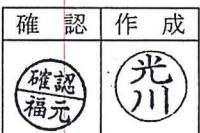 確認 作成
確認
福元
光川